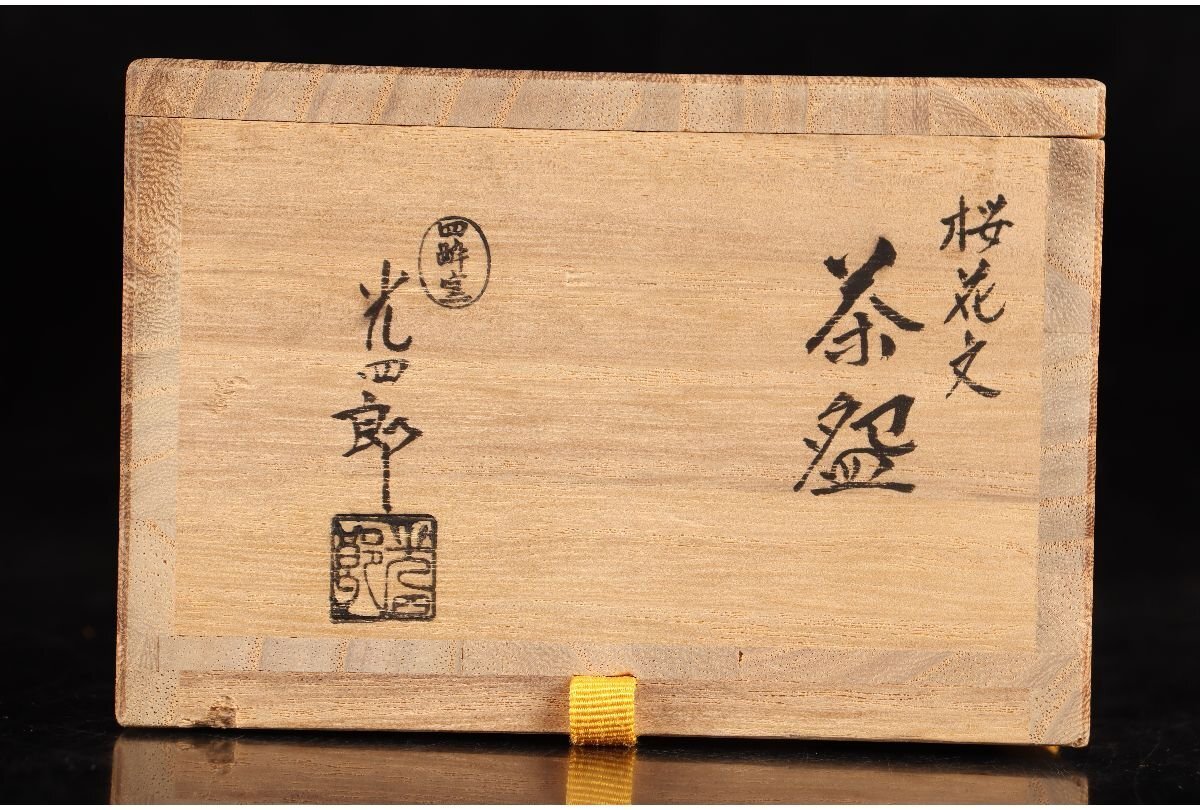 桜花文
茶盌
四酔窯
光四郎
光四郎